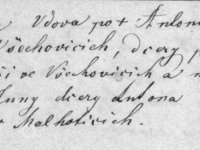 Vdova po + Antoni
Všechovicích, dcery p
ve Všechovicích a m
Anny dcery Antona
Malhoticích.